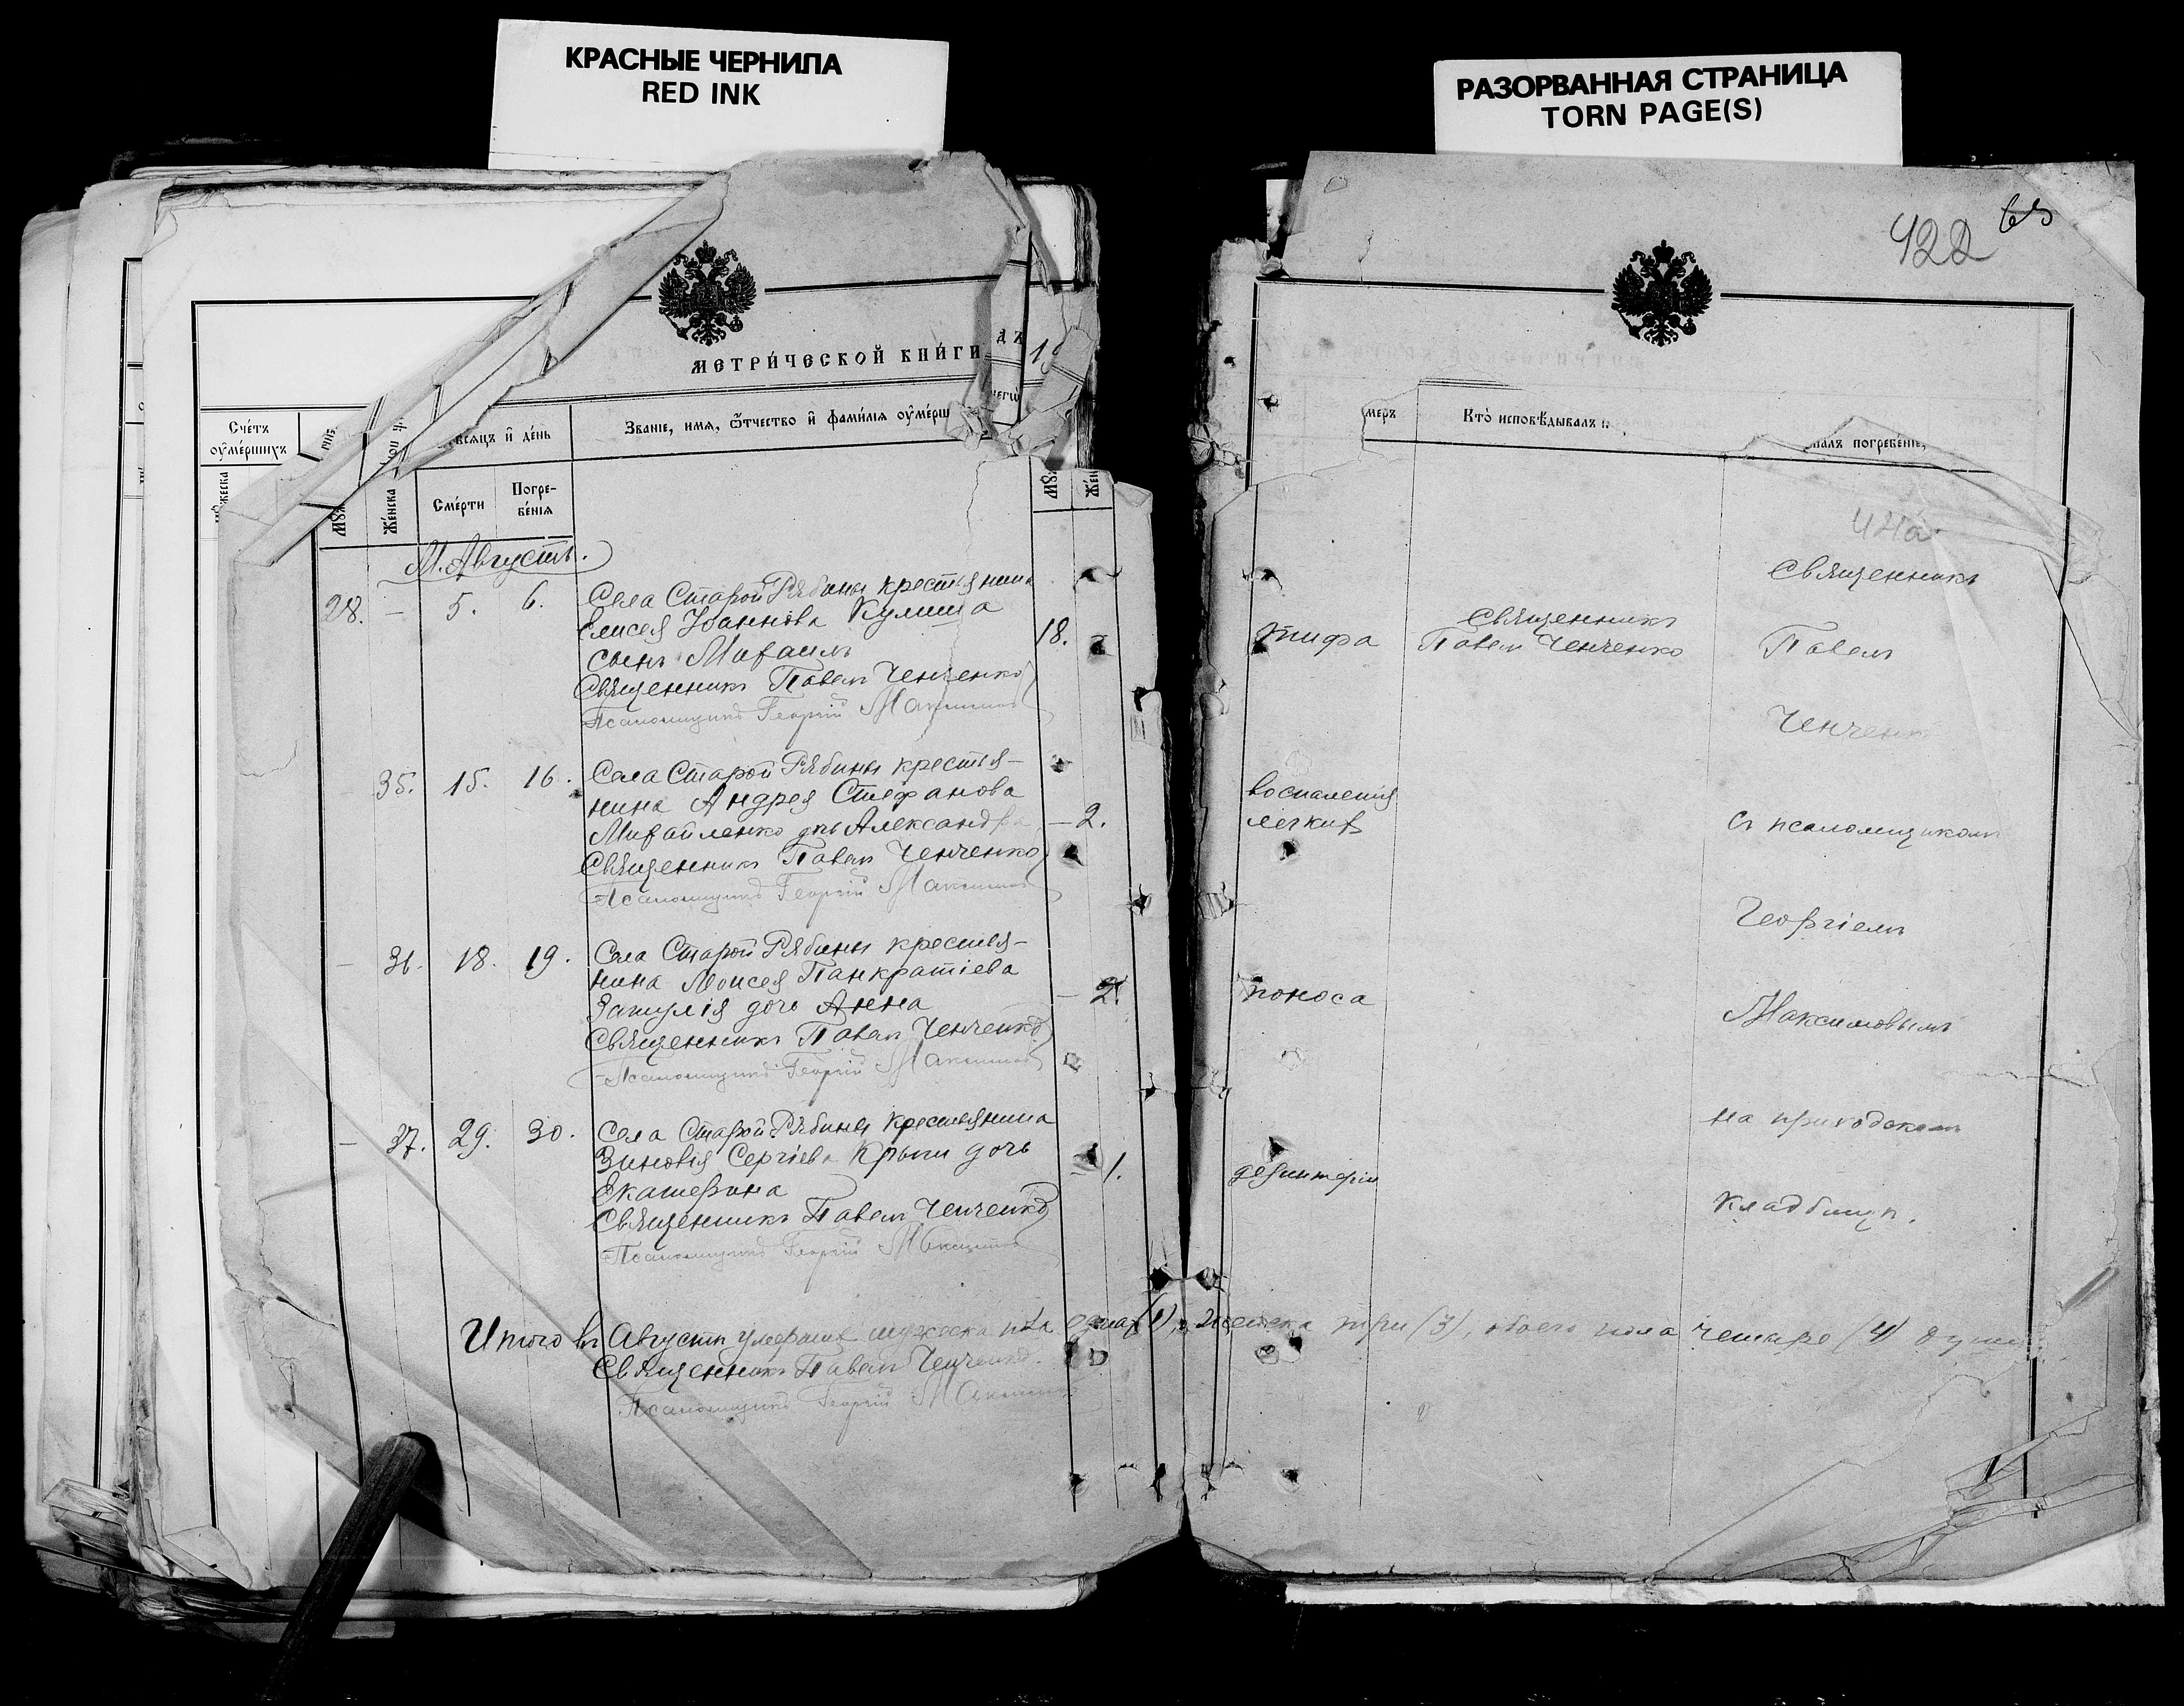 КРАСНЫЕ ЧЕРНИЛА
RED INK
РАЗОРВАННАЯ СТРАНИЦА
TORN PAGE(S)
422
МЕТРИ́ЧЕСКОЙ КНИ́ГИ
Сче́тъ ᲂу҆ме́ршихъ
Же́нска
и҆ де́нь
Сме́рти
Погребе́нїѧ
Зва́нїе, и҆мѧ, ѻ҆́тчество и҆ фами́лїѧ
М. Августъ.
28. — 5. 6. Села Старой Рябины крестьянина
Елисея Іоаннова Кулиша
сынъ Михаилъ
18.
Священникъ Павелъ Ченченко
Псаломщикъ Георгій Максимовъ
35. 15. 16. Села Старой Рябины крестья-
нина Андрея Стефанова
Михайленко дчь Александра
— 2.
Священникъ Павелъ Ченченко
Псаломщикъ Георгій Максимовъ
— 36. 18. 19. Села Старой Рябины крестья-
нина Моисея Панкратіева
дочь Анна
— 2.
Священникъ Павелъ Ченченко
Псаломщикъ Георгій Максимовъ
— 37. 29. 30. Села Старой Рябины крестьянина
Зиновія Сергіева дочь
Екатерина
— 1.
Священникъ Павелъ Ченченко
Псаломщикъ Георгій Максимовъ
Итого въ Августѣ умершихъ мужеска пола одинъ (1), женска три (3), обоего пола четыре (4) души
Священникъ Павелъ Ченченко.
Псаломщикъ Георгій Максимовъ
Кто̀ и҆сповѣ́дывалъ
погребе́нїе,
тифа
Священникъ
Павелъ Ченченко
воспаленія
легкихъ
поноса
дезинтеріи
Священникъ
Павелъ
Ченченк
съ псаломщикомъ
Георгіемъ
Максимовымъ
на приходскомъ
кладбищѣ.